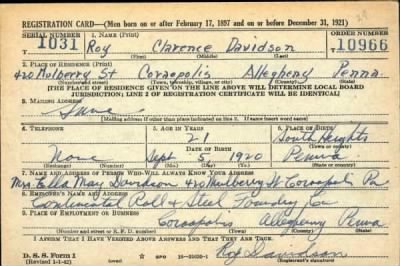 REGISTRATION CARD—(Men born on or after February 17, 1897 and on or before December 31, 1921)
SERIAL NUMBER 1. NAME (Print) ORDER NUMBER
1031 Roy Clarence Davidson 10966
2. PLACE OF RESIDENCE (Print)
420 Mulberry St Coraopolis Allegheny Penna.
(Number and street) (Town, township, village, or city) (County) (State)
[THE PLACE OF RESIDENCE GIVEN ON THE LINE ABOVE WILL DETERMINE LOCAL BOARD
JURISDICTION; LINE 2 OF REGISTRATION CERTIFICATE WILL BE IDENTICAL]
3. MAILING ADDRESS
Same
[Mailing address if other than place indicated on line 2. If same insert word same]
4. TELEPHONE 5. AGE IN YEARS 6. PLACE OF BIRTH
21 South Heights
DATE OF BIRTH (Town or county)
None Sept. 5 1920 Penna
(Exchange) (Number) (Mo.) (Day) (Yr.) (State or country)
7. NAME AND ADDRESS OF PERSON WHO WILL ALWAYS KNOW YOUR ADDRESS
Mrs. Ella May Davidson 420 Mulberry St Coraopolis Pa
8. EMPLOYER'S NAME AND ADDRESS
Continental Roll & Steel Foundry Co
9. PLACE OF EMPLOYMENT OR BUSINESS
Coraopolis Allegheny Penna
(Number and street or R. F. D. number) (Town) (County) (State)
I AFFIRM THAT I HAVE VERIFIED ABOVE ANSWERS AND THAT THEY ARE TRUE.
D. S. S. Form 1
(Revised 1-1-42) (over) GPO 16—21630-1 Roy Davidson